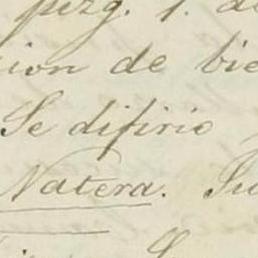 juzg. 1.
cion de bie
Se difirio
Natera. Ju